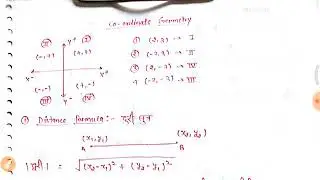 Co-ordinate Geometry
II Y+ I
(-,+) (+,+)
X- X+
(-,-) (+,-)
III Y- IV
① (2,3) → I
② (-2,3) → II
③ (2,-3) → IV
4 (-2,-3) → III
① Distance formula:- दूरी सूत्र
(x₁,y₁) (x₂,y₂)
A B
= √(x₂-x₁)² + (y₂-y₁)²